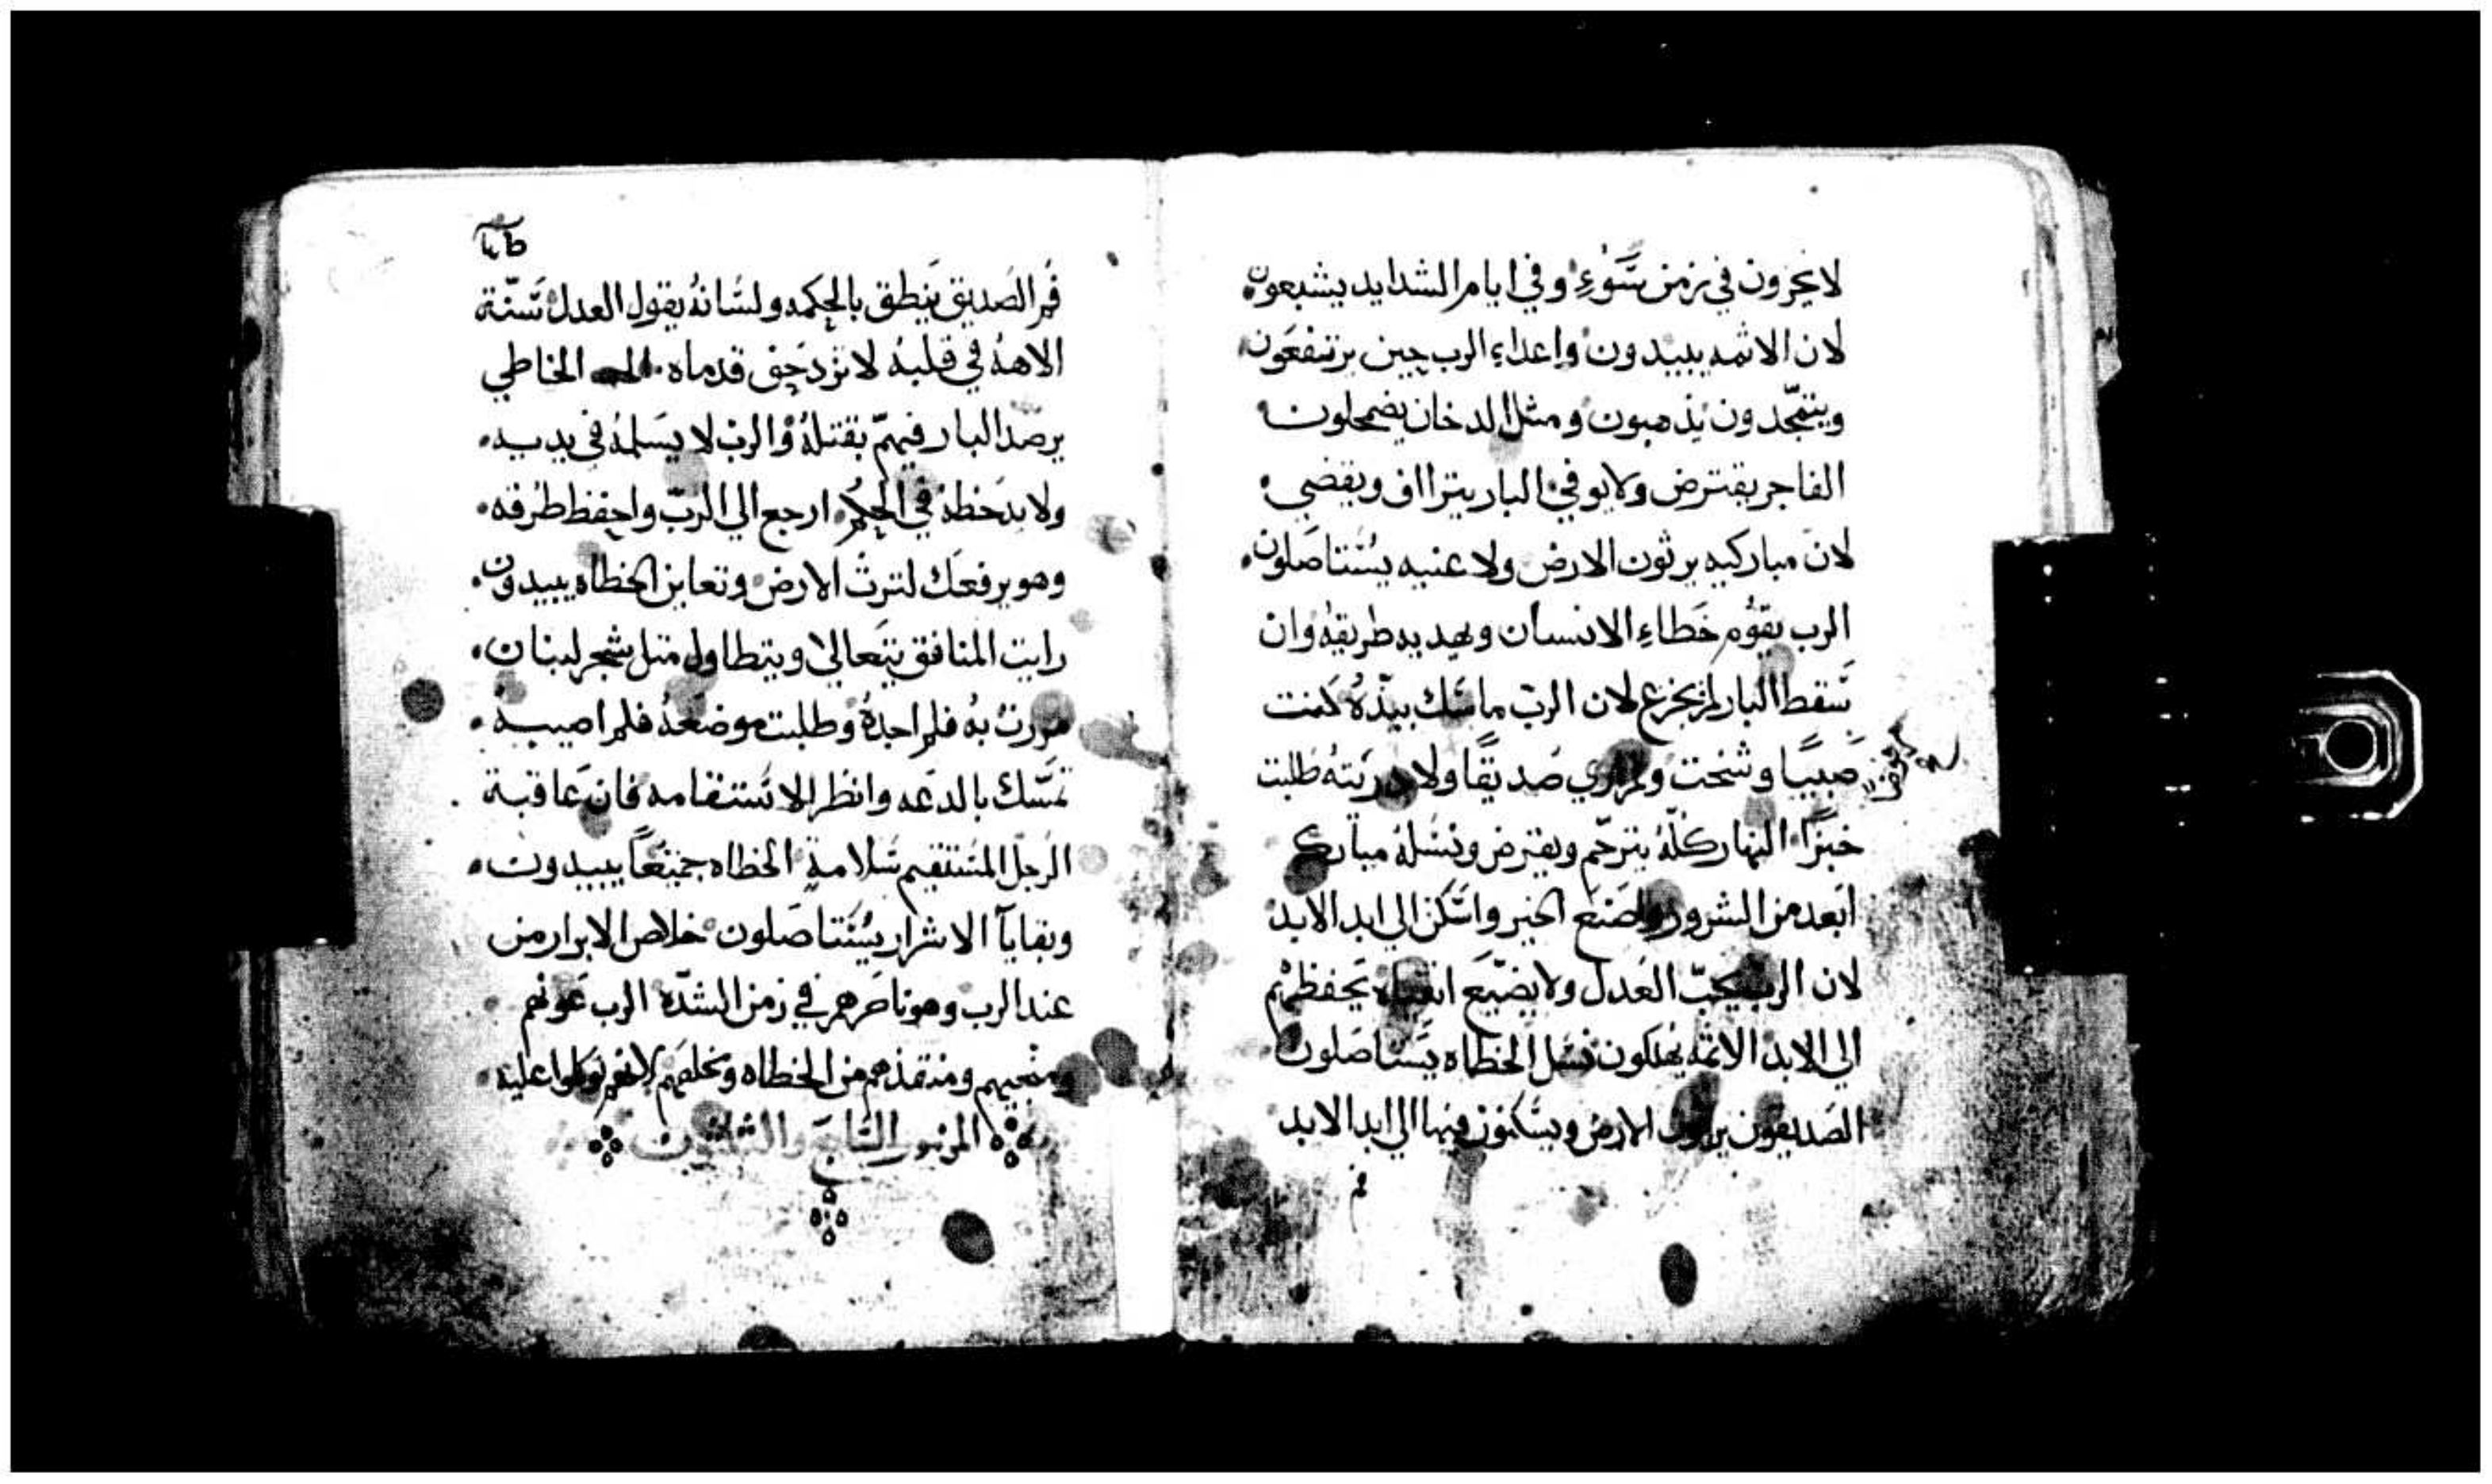 لا يخزون في زمن سَّوُءٍ وفي ايام الشدايد يشبعون
لان الاثمه يبيدون واعداءِ الرب حين يرتفعون
ويتمجّدون يذهبون ومثل الدخان يضمحلون
الفاجر يقترض ولا يوفي البار يتراااف ويقضي
لان مباركيه يرثون الارض ولاعنيه يستاصلون
الرب يقوّم خطاءِ الانسان ويهديه طريقه وان
سقط البار لم يجزع لان الربّ ماسك بيدّهُ كنت
صبيًا وشخت ولم اري صديقًا ولا ذريته طلبت
خبزًا النهار كلّهُ يترحّم ويقرض ونسله مبارك
ابعد من الشرور واصنع الخير واسكن الي ابد الابد
لان الرب يحبّ العدل ولا يضيّع اتقياه يحفظهم
الي الابد الاثمه يهلكون نسل الخطاه يستاصلون
الصديقون يرثون الارض ويسكنون فيها الي ابد الابد
فم
فم الصديق ينطق بالحكمه ولسانهُ يقول العدل سّنة
الاههُ في قلبهُ لا تزدحق قدماه الخاطي
يرصد البار فيهمّ بقتلهُ والرب لا يسلمهُ في يديه
ولا يدحظه في الحكم ارجع الي الربّ واحفظ طرقه
وهو يرفعك لترث الارض وتعاين الخطاه يبيدون
رايت المنافق يتعالي ويتطاول مثل شجر لبنان
مررت به فلم اجدهُ وطلبت موضعهُ فلم اصيبهُ
تمسّك بالدعه وانظر الاستقامه فان عاقبة
الرجل المستقيم سلامة الخطاه جميعًا يبيدون
وبقايا الاشرار يستاصلون خلاص الابرار من
عند الرب وهو ناصرهم في زمن الشدّه الرب عونهم
ومنجيهم ومنقذهم من الخطاه ويخلصهم لانهم توكلوا عليه
المزمور السابع والثلاثون